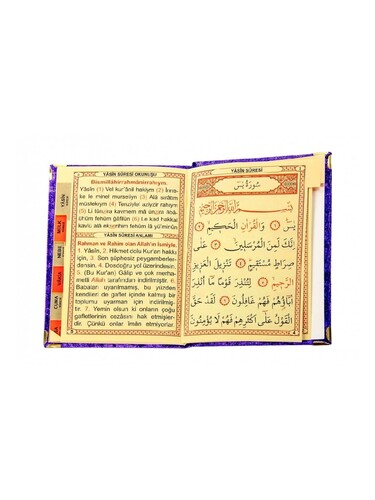 YÂSİN SÛRESİ OKUNUŞU
Bismillâhirrahmânirrahıym.
Yâsîn (1) Vel kur'ânil hakiym (2) İnne-
ke le minel murseliyn (3) Alâ sırâtım
müstekıym (4) Tenziylel aziyzir rahiym
(5) Li tünzira kavmem mâ ünzira âbâ-
ühüm fehüm gâfilûn (6) Le kad hakkal
kavlü alâ ekserihim fehüm lâ yü'minûn
YÂSİN SÛRESİ ANLAMI
Rahman ve Rahim olan Allah'ın İsmiyle.
1. Yâsîn. 2. Hikmet dolu Kur'an hakkı
için, 3. Sen şüphesiz peygamberler-
densin. 4. Dosdoğru yol üzerindesin.
5. (Bu Kur'an) Gâlip ve çok merha-
metli Allah tarafından indirilmiştir. 6.
Babaları uyarılmamış, bu yüzden
kendileri de gaflet içinde kalmış bir
toplumu uyarman için indirilmiş-
tir. 7. Yemin olsun ki onların çoğu
gafletlerinin cezasını hak etmişler-
dir. Çünkü onlar îman etmiyorlar.
YÂSİN
MÜLK
NEBE
VÂKIA
CUMA
YÂSİN SÛRESİ
سُورَةُ يٰسٓ
بِسْمِ اللّٰهِ الرَّحْمٰنِ الرَّحِيمِ
يٰسٓ ﴿١﴾ وَالْقُرْاٰنِ الْحَكِيمِ ﴿٢﴾
اِنَّكَ لَمِنَ الْمُرْسَلِينَ ﴿٣﴾ عَلٰى
صِرَاطٍ مُسْتَقِيمٍ ﴿٤﴾ تَنْزِيلَ الْعَزِيزِ
الرَّحِيمِ ﴿٥﴾ لِتُنْذِرَ قَوْمًا مَٓا اُنْذِرَ
اٰبَٓاؤُهُمْ فَهُمْ غَافِلُونَ ﴿٦﴾ لَقَدْ حَقَّ
الْقَوْلُ عَلٰٓى اَكْثَرِهِمْ فَهُمْ لَا يُؤْمِنُونَ